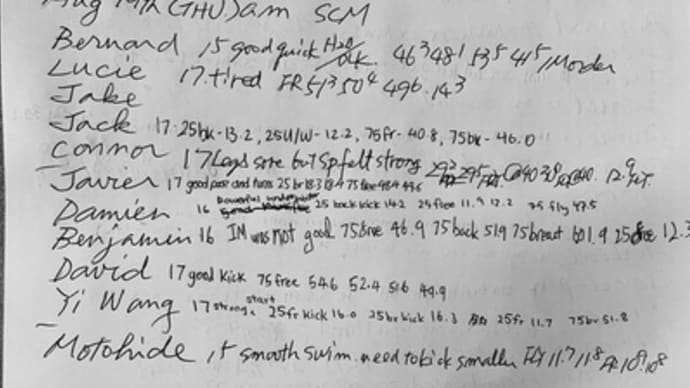 19th (THU) am SCM
Bernard 15 good quick H2O 46³ 48¹ 53⁵ 41⁵/
Lucie 17. tired FR 51³ 50⁴ 49⁶. 14³
Jake
Jack 17 25bk-13.2, 25U/W-12.2, 75fr-40.8, 75bk-46.0
Connor 17 Legs sore but felt strong 12.9
Javier 17 good pace and turns 25br 18.3 18.4 75free
Damien 16 Powerful underwater 25 back kick 14.2 25 free 11.9 12.2 75 fly 47.5
Benjamin 16 IM was not good 75free 46.9 75back 51.9 75breast 601.9 25free 12.3
David 17 good kick 75free 54.6 52.4 51.6 49.9
Yi Wang 17 strong start 25fr kick 16.0 25br kick 16.3 25fr 11.7 75br 51.8
Motohide 15 smooth swim. need to kick smaller FLY 11.7 11.8 FR 10⁹ 10⁸